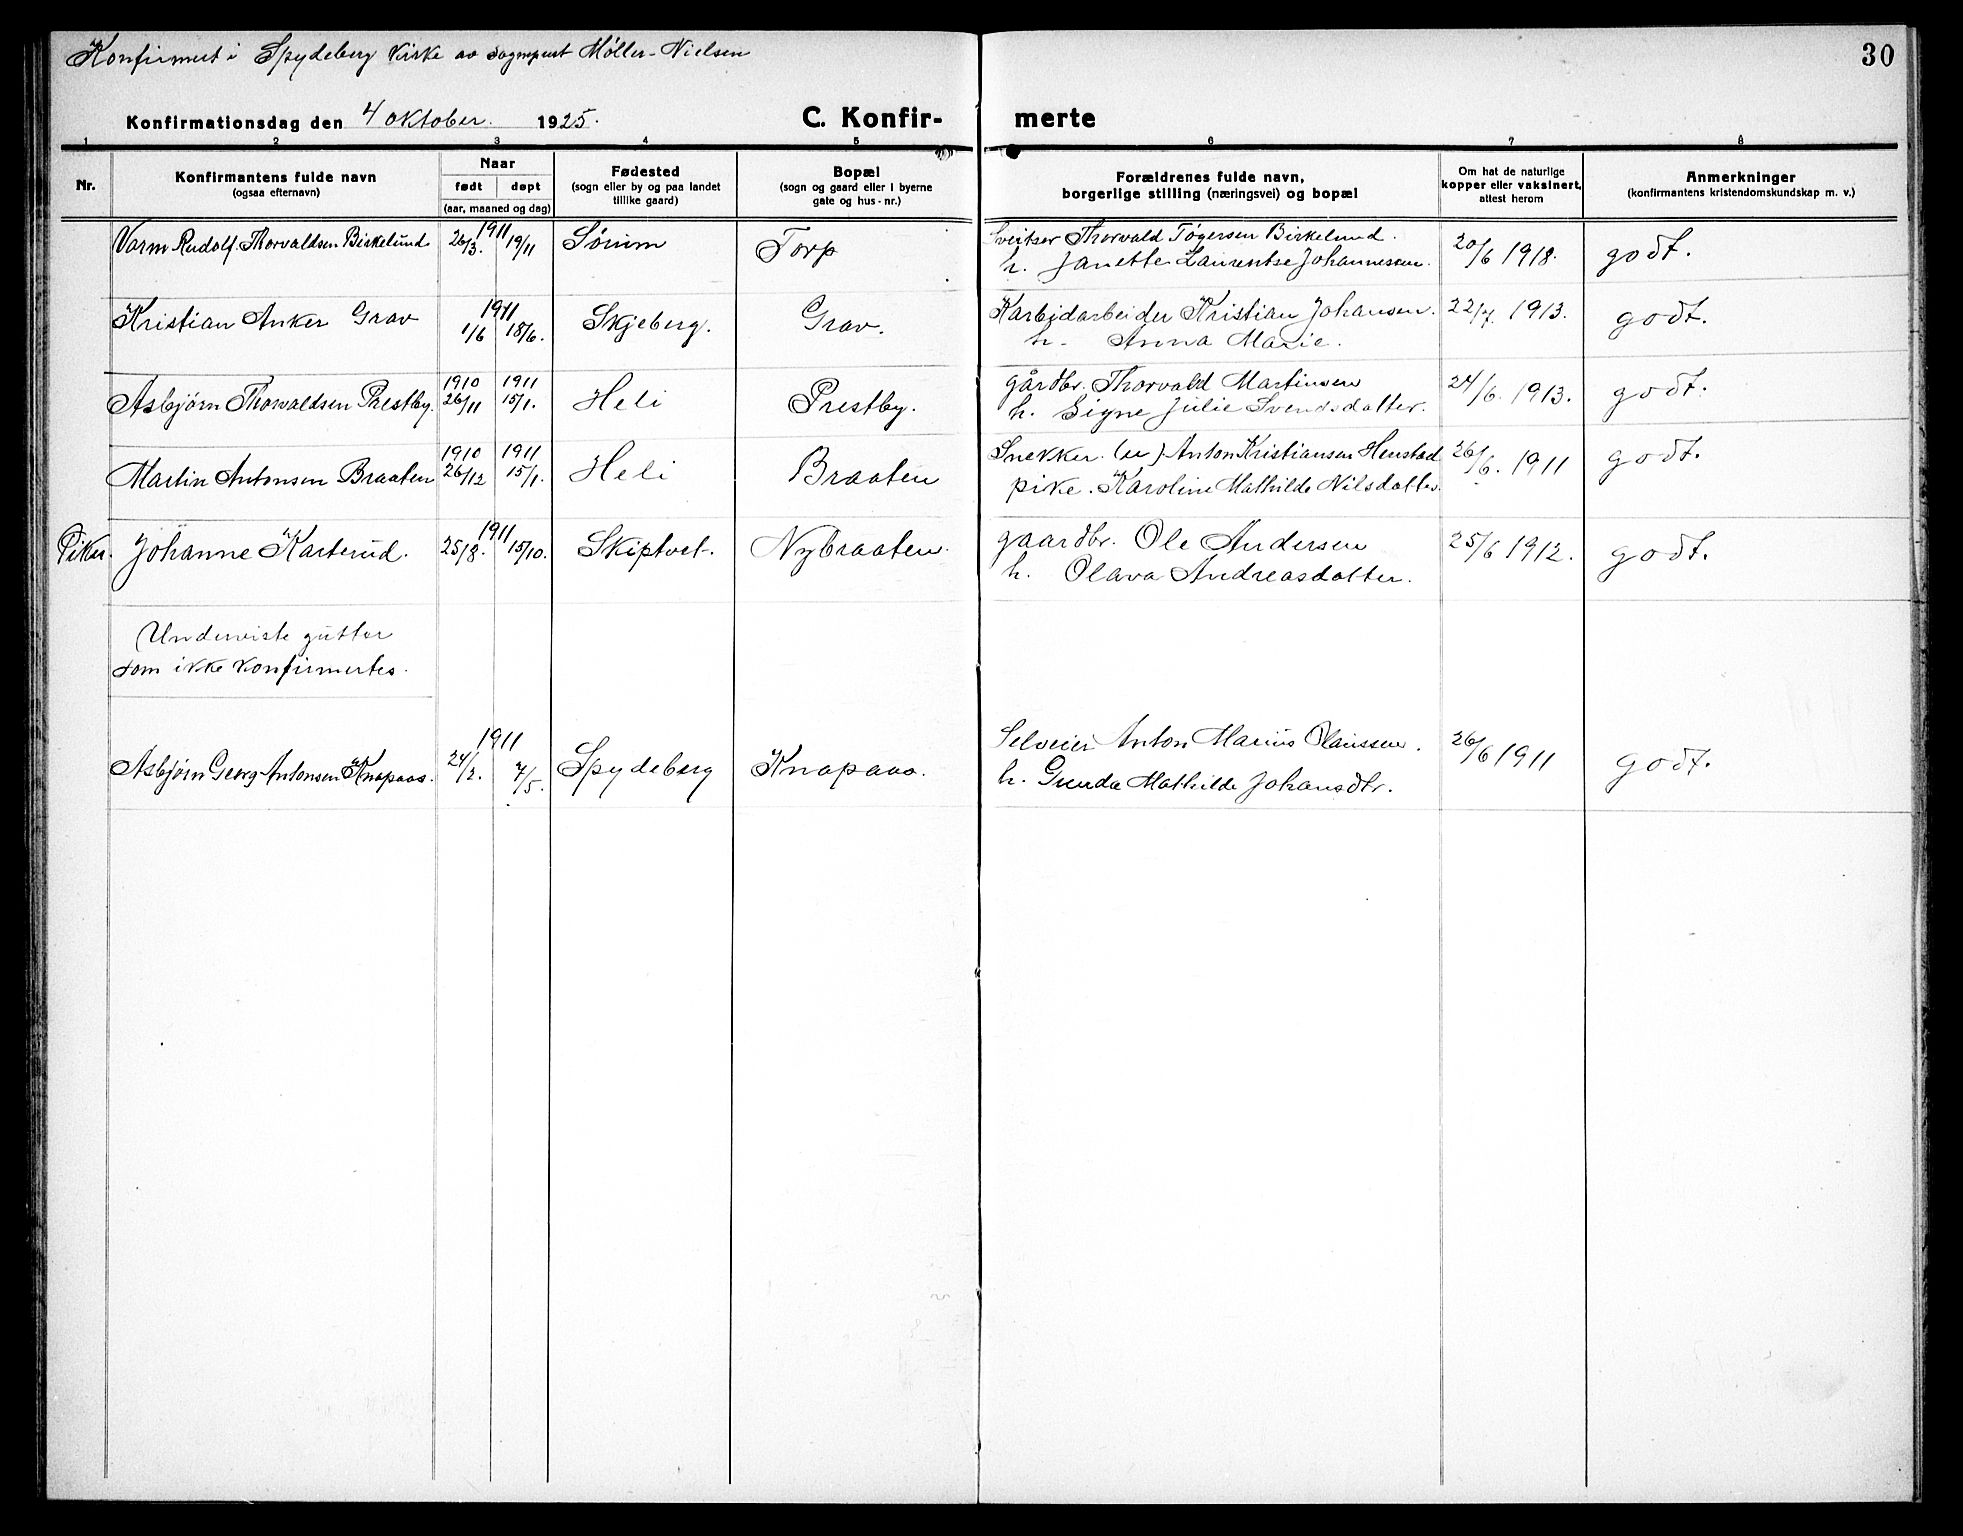 Konfirmert i Spydeberg Kirke av sognepest Møller-Nielsen
30
Konfirmationsdag den 4 oktober. 1925.
C. Konfir- merte
1 2 3 4 5 6 7 8
Nr.
Konfirmantens fulde navn
(ogsaa efternavn)
Naar
født døpt
(aar, maaned og dag)
Fødested
(sogn eller by og paa landet
tillike gaard)
Bopæl
(sogn og gaard eller i byerne
gate og hus-nr.)
Forældrenes fulde navn,
borgerlige stilling (næringsvei) og bopæl
Om hat de naturlige
kopper eller vaksinert,
attest herom
Anmerkninger
(konfirmantens kristendomskundskap m. v.)
Varm Rudolf Thorvaldsen Birkelund 1911 26/3. 19/11 Sørum Torp Sveitser Thorvald Tøgersen Birkelund. 20/6 1918. godt.
h. Janette Laurentse Johannesen.
Kristian Anker Grav 1911 1/6 18/6. Skjeberg. Grav. Karbidarbeider Kristian Johansen. 22/7. 1913. godt.
h. Anna Marie.
Asbjørn Thorvaldsen Prestby. 1910 26/11 1911 15/1. Heli Prestby. gårdbr. Thorvald Martinsen 24/6. 1913. godt.
h. Signe Julie Svendsdatter.
Martin Antonsen Braaten 1910 26/12 1911 15/1. Heli Braaten Snekker. (u) Anton Kristiansen Henstad 26/6. 1911 godt.
pike. Karoline Mathilde Nilsdatter.
Piker. Johanne Karterud. 1911 25/8. 15/10. Skiptvet. Nybraaten. gaardbr. Ole Andersen 25/6 1912. godt.
h. Olava Andreasdatter.
Underviste gutter
som ikke konfirmertes.
Asbjørn Georg Antonsen Knapaas. 1911 24/2. 7/5. Spydeberg Knapaas. Selveier Anton Marius Olaussen. 26/6 1911 godt.
h. Gunda Mathilde Johansdtr.